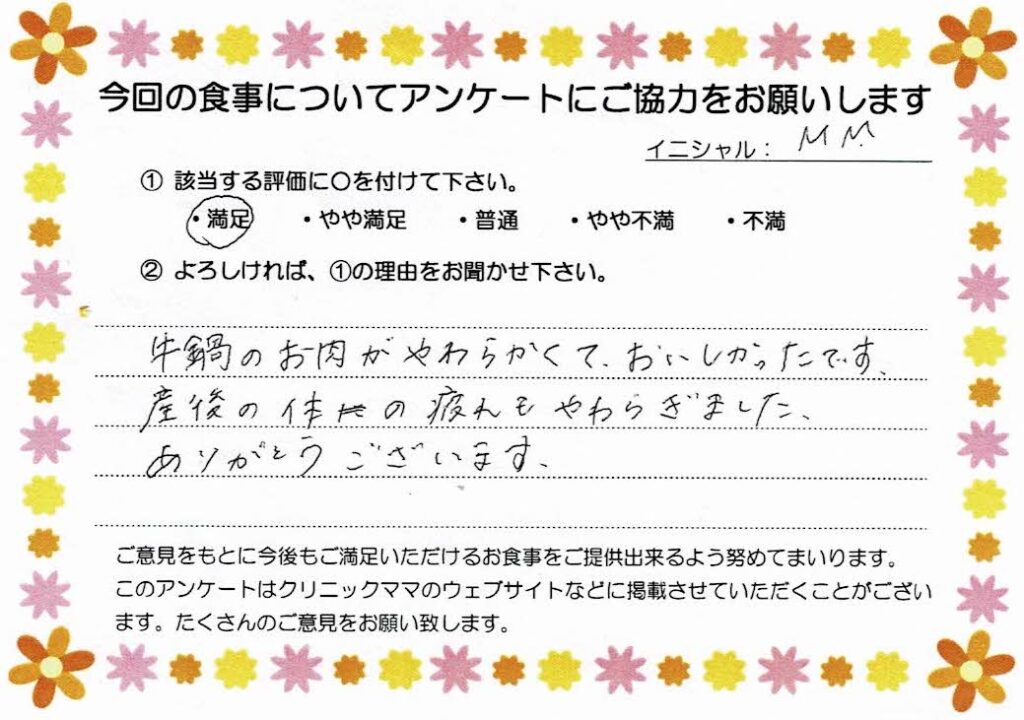 今回の食事についてアンケートにご協力をお願いします
イニシャル： M M.
① 該当する評価に〇を付けて下さい。
・満足 ・やや満足 ・普通 ・やや不満 ・不満
② よろしければ、①の理由をお聞かせ下さい。
牛鍋のお肉がやわらかくて、おいしかったです。
産後の体の疲れもやわらぎました。
ありがとうございます。
ご意見をもとに今後もご満足いただけるお食事をご提供出来るよう努めてまいります。
このアンケートはクリニックママのウェブサイトなどに掲載させていただくことがござい
ます。たくさんのご意見をお願い致します。